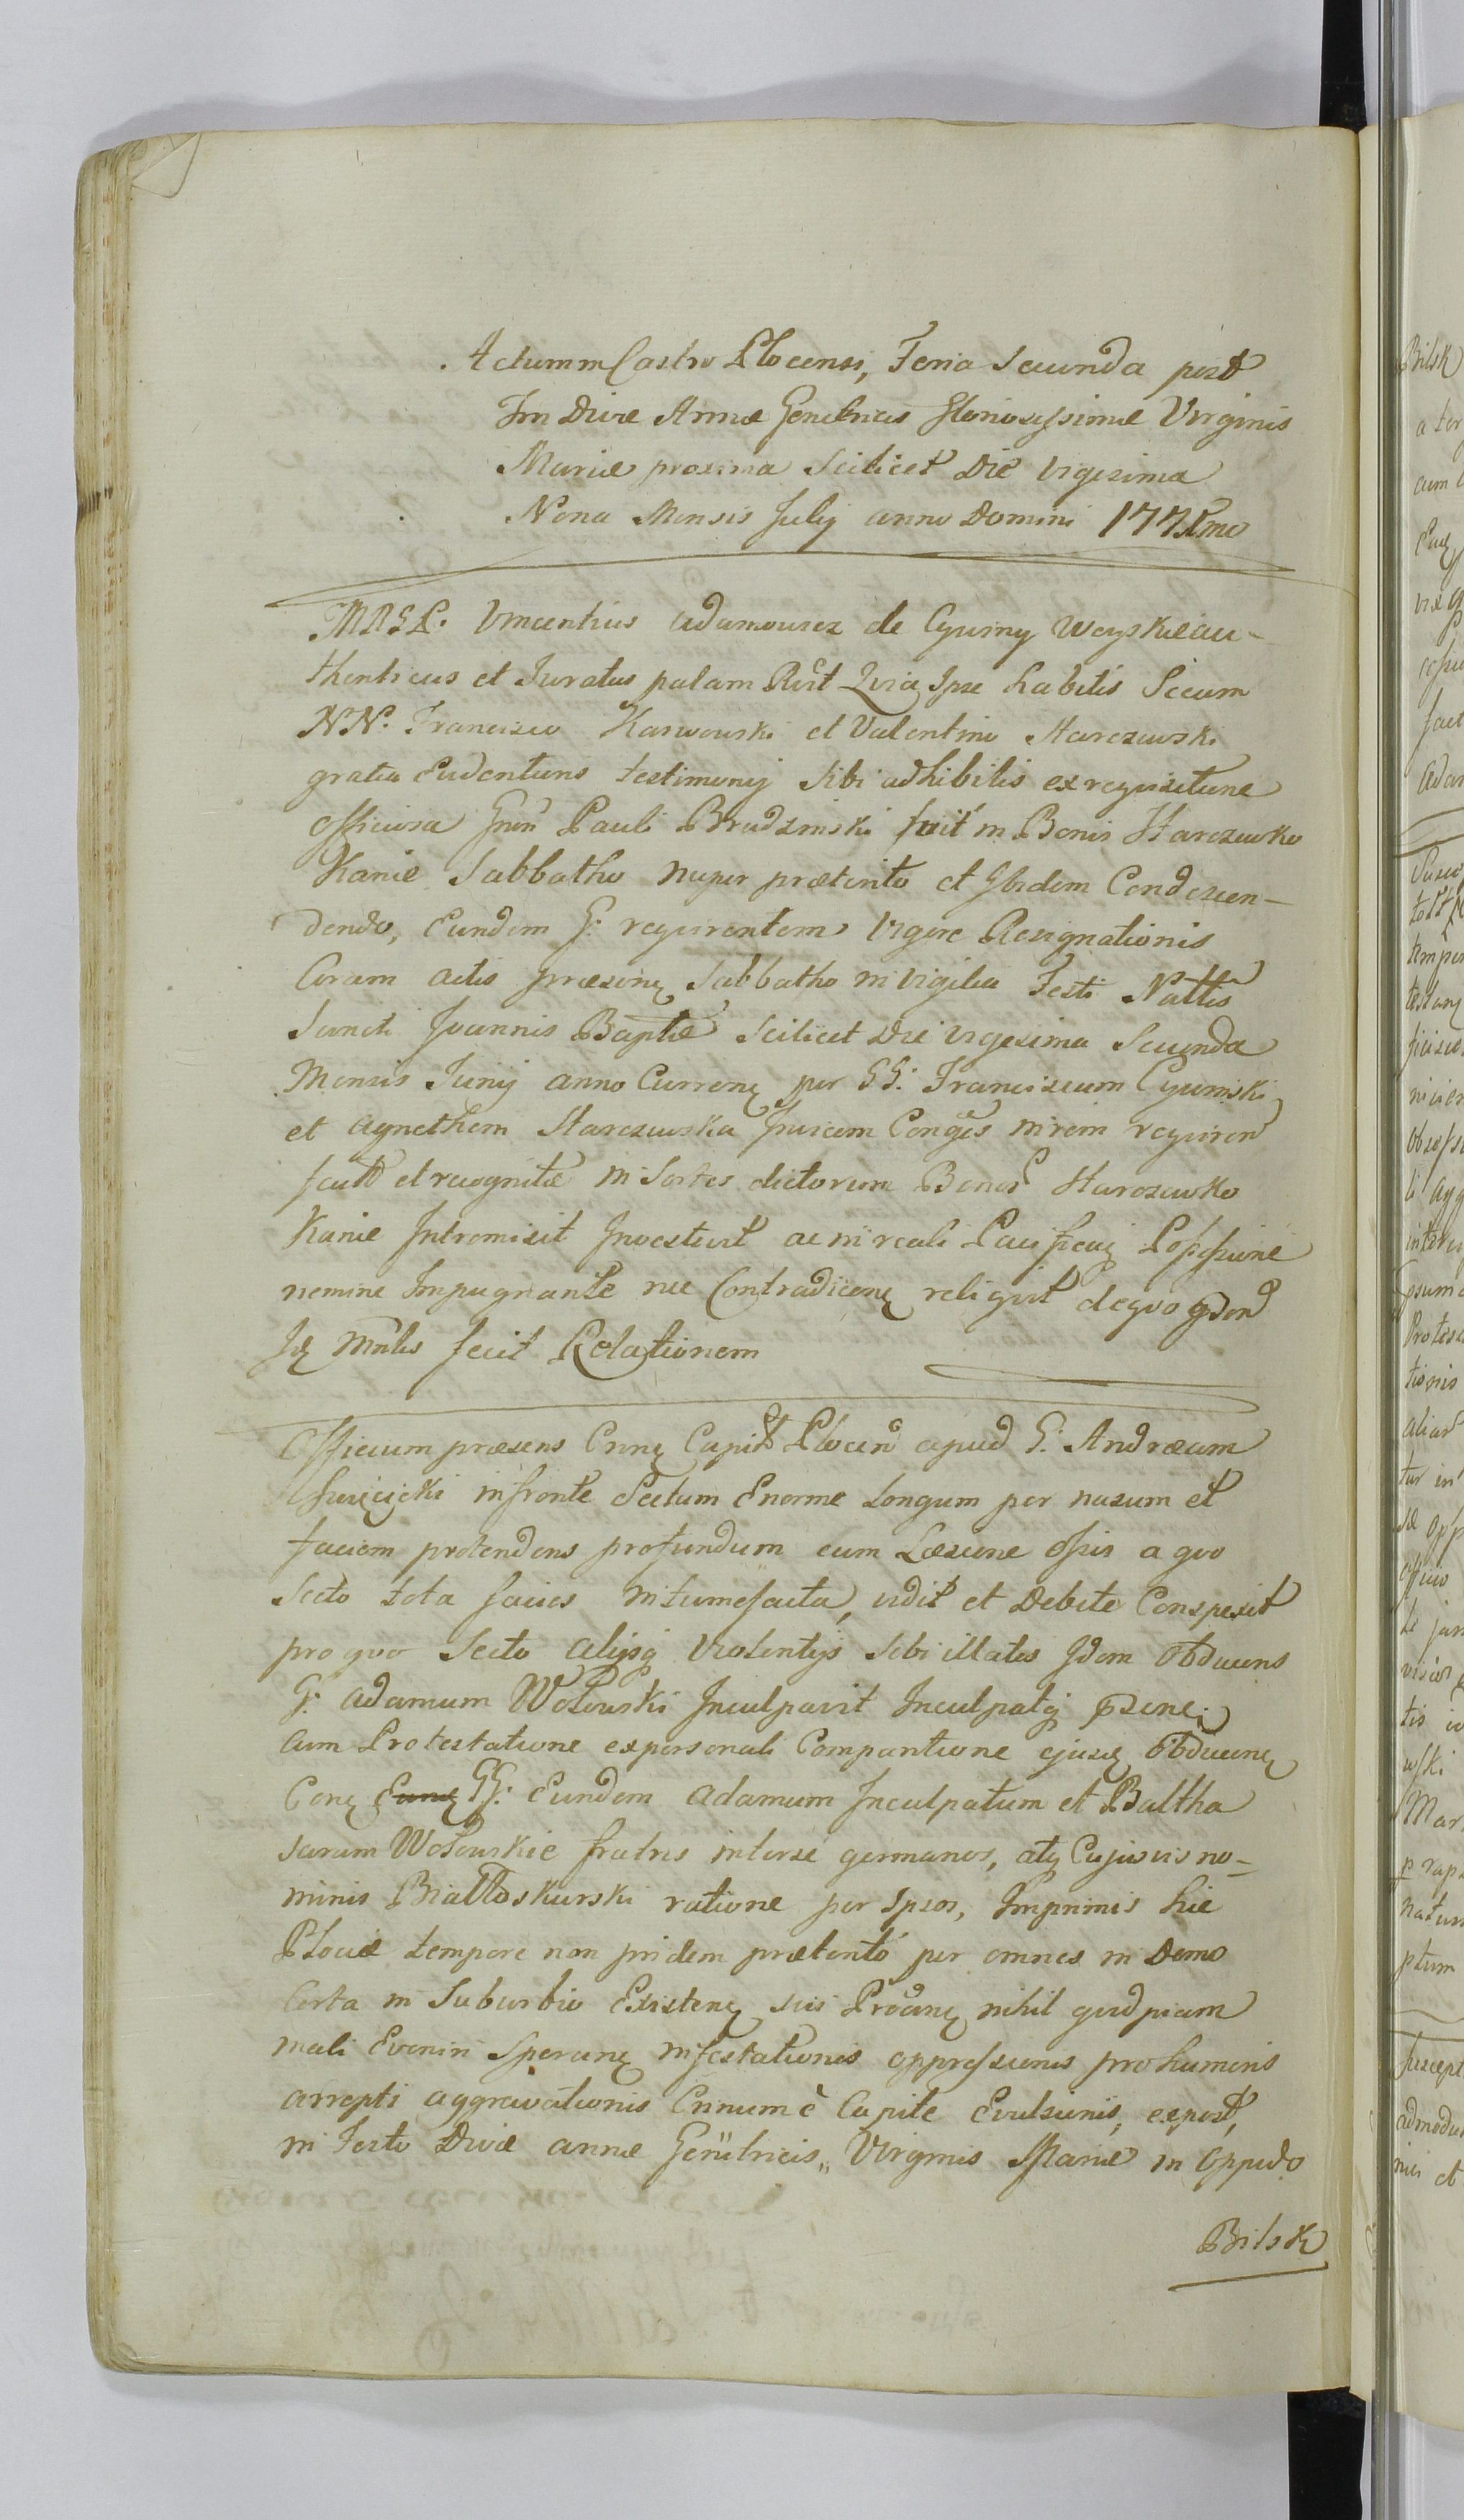 Actum in Castro Plocensi, Feria Secunda post
Ftm Divæ Annæ Genitricis Gloriosissimæ Virginis
Mariæ proxima Scilicet Die Vigesima
Nona Mensis Julij anno Domini 177
MRGL. Vincentius Adamowicz de Cyumy Woyskie au-
thenticus et Juratus palam Rict Quia Ipse habitis Secum
NN. Francisco Karwowski et Valentino Starczewski
gratia Evidentiuns testimonij sibi adhibitis ex requisitione
officiosa Gnsi Pauli Brudzinski fuit in Bonis Starczewko
Kanie Sabbatho nuper præterito et Ibidem Condescen-
dendo, Eundem G: requirentem vigore Resignationis
Coram actis præsenę Sabbatho in vigilia Festi Nattis
Sancti Joannis Baptæ Scilicet Die vigesima Secunda
Mensis Junij anno Currenę per GG: Franciscum Cyumski
et Agnethem Starczewska Invicem Conges in rem requiren
factæ et recognitæ in Sortes dictorum Bonor Starczewko
Kanie Intromisit Investivit ac in reali Pacificaq Possessione
nemine Impugnante nec Contradicenę reliquit de quo
Mnlis fecit Relationem
Officium præsens Cnnę Capitt Plocen apud G: Andræum
Święcicki in fronte Sectum Enorme Longum per nasum et
faciem protendens profundum cum Læsione ossis a quo
Secto tota facies intumefacta, vidit et Debite Conspexit
pro quo Secto alijsq Violentijs Sibi illatis Idem Obducens
G: Adamum Wołowski Inculpavit Inculpatq
Cum Protestatione ex personali Comparitione ejusdę Obducenę
Conę Eunę GG: Eundem Adamum Inculpatum et Baltha
sarum Wołowskie fratres inter se germanos, atq Cujusvis no-
minis Białłoskurski ratione per Ipsos, Imprimis hic
Plociæ tempore non pridem præterito per omnes in Domo
Certa in Suburbio Existenę suis Procurę nihil quidpiam
mali Evenire Speranę infestationis oppressionis pro humeris
arrepti aggravationis Crinium è Capite Evulsionis, expost,
in Festo Divæ annæ Genitricis „ Virginis Mariæ in Oppido
Bilsk